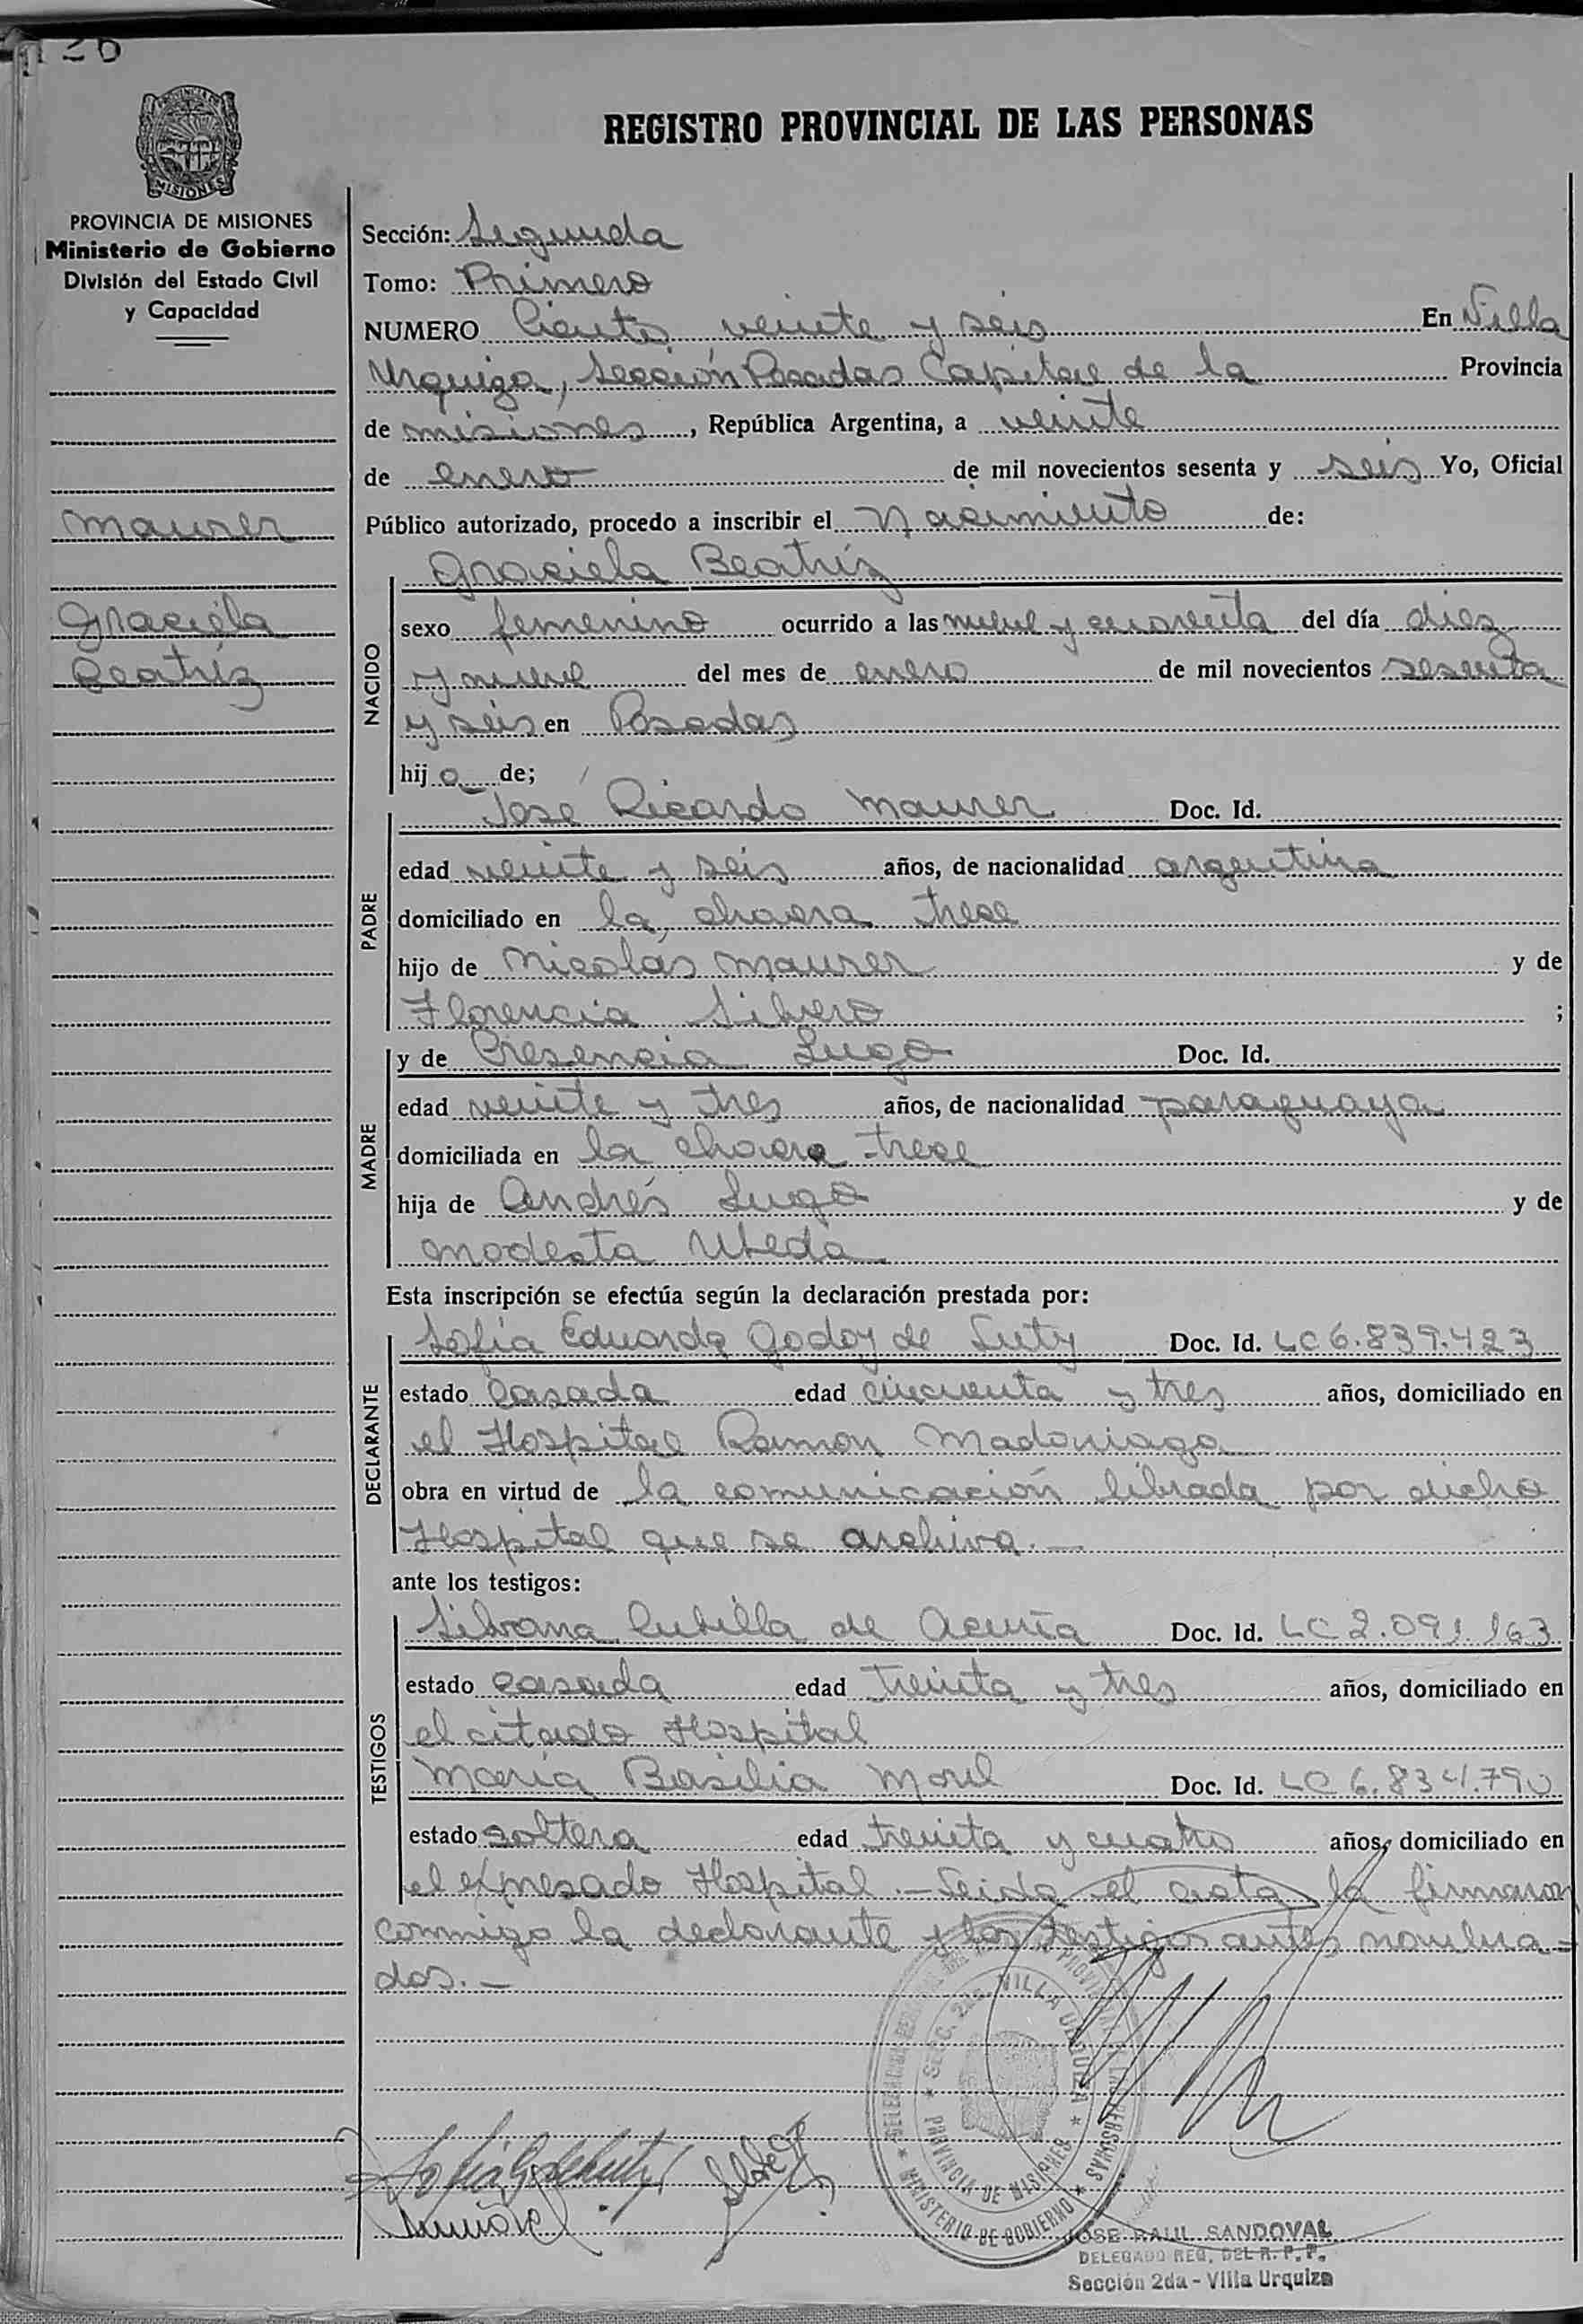 126
PROVINCIA DE MISIONES
Ministerio de Gobierno
División del Estado Civil
y Capacidad
Maurer
Graciela
Beatríz
REGISTRO PROVINCIAL DE LAS PERSONAS
Sección: Segunda
Tomo: Primero
NUMERO Ciento veinte y seis En Villa
Urquiza, Sección Posadas Capital de la Provincia
de misiones, República Argentina, a veinte
de enero de mil novecientos sesenta y seis Yo, Oficial
Público autorizado, procedo a inscribir el Nacimiento de:
Graciela Beatríz
NACIDO
sexo femenino ocurrido a las nueve y cuarenta del día diez
y nueve del mes de enero de mil novecientos sesenta
y seis en Posadas
hija de;
José Ricardo Maurer Doc. Id.
PADRE
edad veinte y seis años, de nacionalidad argentina
domiciliado en la chacra trece
hijo de Nicolás Maurer y de
Florencia Silvero ;
y de Cresencia Lugo Doc. Id.
MADRE
edad veinte y tres años, de nacionalidad paraguaya
domiciliada en la chacra trece
hija de Andrés Lugo y de
Modesta Ubeda
Esta inscripción se efectúa según la declaración prestada por:
Sofía Eduarda Godoy de Luty Doc. Id. LC 6.839.423
DECLARANTE
estado casada edad cincuenta y tres años, domiciliado en
el Hospital Ramon Madariaga
obra en virtud de la comunicación librada por dicho
Hospital que se archiva.—
ante los testigos:
Silvana Cubilla de Acuña Doc. Id. LC 2.091.163
TESTIGOS
estado casada edad treinta y tres años, domiciliado en
el citado Hospital
María Basilia Morel Doc. Id. LC 6.834.790
estado soltera edad treinta y cuatro años, domiciliado en
el expresado Hospital.—Leida el acta la firmaron
conmigo la declarante y los testigos antes nombra=
dos.—
DELEGACION REGISTRO PROVINCIAL DE LAS PERSONAS
SECC. 2da. VILLA URQUIZA
PROVINCIA DE MISIONES
MINISTERIO DE GOBIERNO
JOSE RAUL SANDOVAL
DELEGADO REG. DEL R. P. P.
Sección 2da - Villa Urquiza